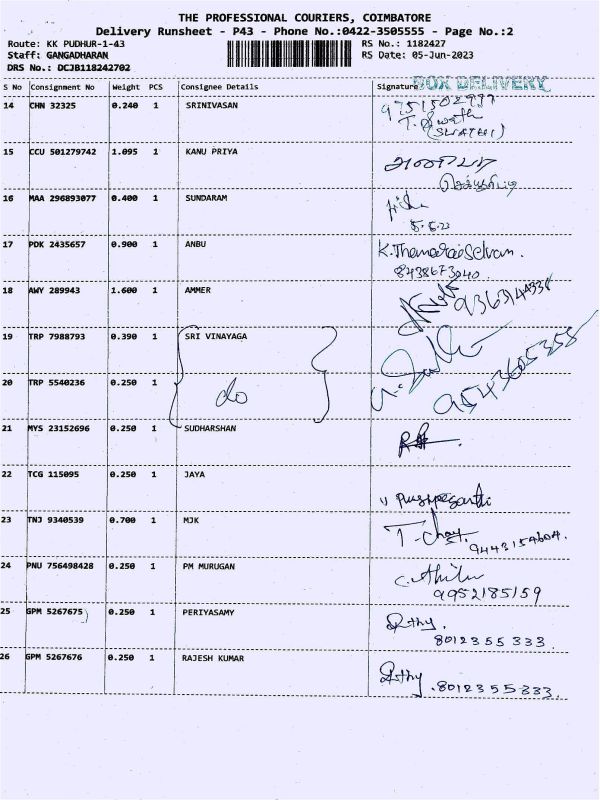 THE PROFESSIONAL COURIERS, COIMBATORE
Delivery Runsheet - P43 - Phone No.:0422-3505555 - Page No.:2
Route: KK PUDHUR-1-43 RS No.: 1182427
Staff: GANGADHARAN RS Date: 05-Jun-2023
DRS No.: DCJB118242702
BOX DELIVERY
S No Consignment No Weight PCS Consignee Details Signature
14 CHN 32325 0.240 1 SRINIVASAN
T. Swathi
(SWATHI)
15 CCU 501279742 1.095 1 KANU PRIYA
16 MAA 296893077 0.400 1 SUNDARAM
17 PDK 2435657 0.900 1 ANBU K.ThamaraiSelvam.
8438673040
18 AWY 289943 1.600 1 AMMER
19 TRP 7988793 0.390 1 SRI VINAYAGA
20 TRP 5540236 0.250 1 do 9543605358
21 MYS 23152696 0.250 1 SUDHARSHAN
22 TCG 115095 0.250 1 JAYA
23 TNJ 9340539 0.700 1 MJK
9443154604.
24 PNU 756498428 0.250 1 PM MURUGAN
9952185159
25 GPM 5267675 0.250 1 PERIYASAMY
8012355333.
26 GPM 5267676 0.250 1 RAJESH KUMAR
.8012355333.